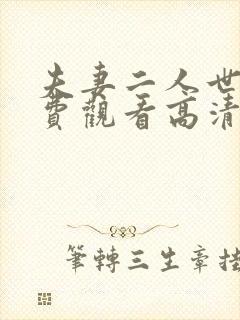 夫妻二人世
費觀看高清
筆轉三生章挂